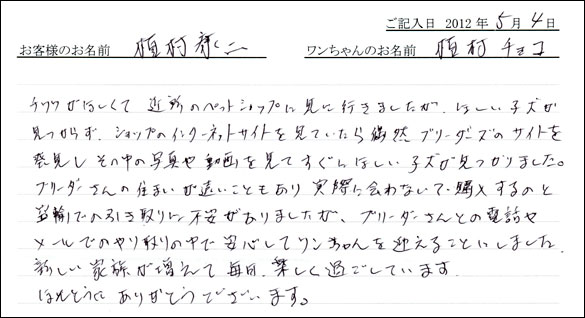 ご記入日 2012 年 5 月 4 日
お客様のお名前 植村 ワンちゃんのお名前 植村 チョコ
チワワがほしくて 近所のペットショップに見に行きましたが、ほしい子犬が
見つからず、ショップのインターネットサイトを見ていたら偶然 ブリーダーズのサイトを
発見し その中の写真や動画を見てすぐにほしい子犬が見つかりました。
ブリーダーさんの住まいが遠いこともあり 実際に会わないで購入するのと
空輸での引き取りに不安がありましたが、ブリーダーさんとの電話や
メールでのやり取りの中で安心してワンちゃんを迎えることにしました。
新しい家族が増えて毎日、楽しく過ごしています。
ほんとうに ありがとうございます。